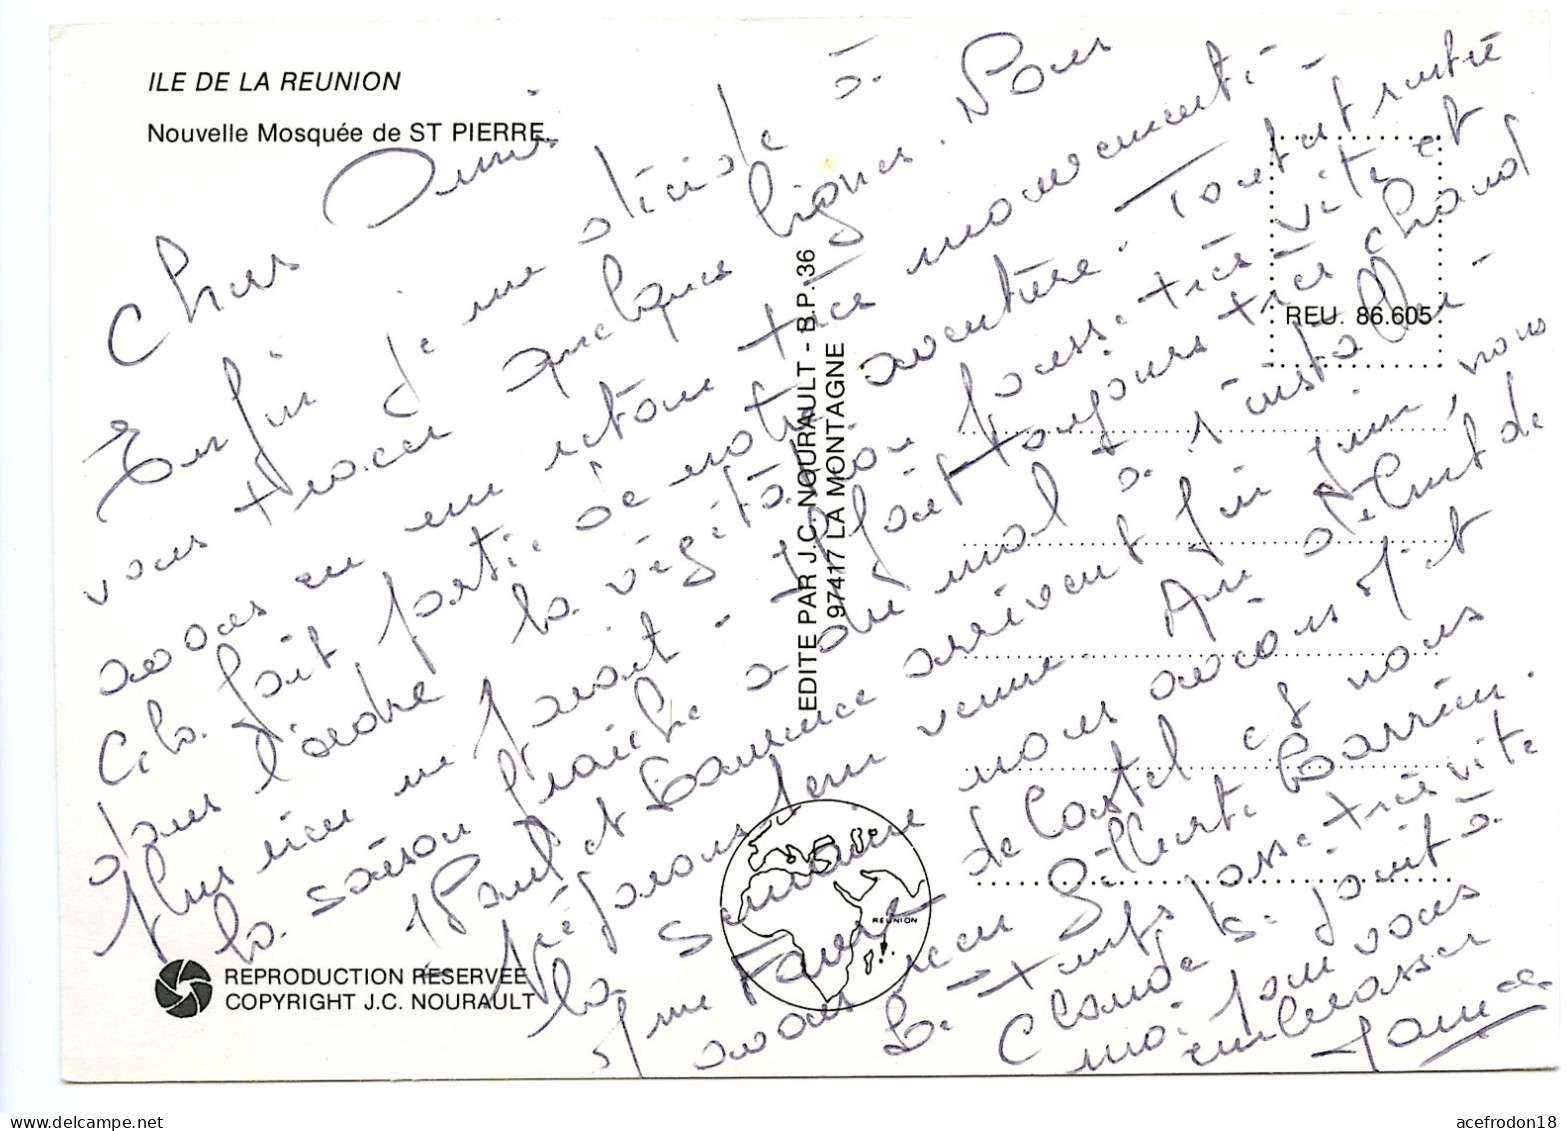 ILE DE LA REUNION
Nouvelle Mosquée de ST PIERRE
REU. 86.605
EDITE PAR J.C. NOURAULT - B.P. 36
97417 LA MONTAGNE
REUNION
REPRODUCTION RESERVEE
COPYRIGHT J.C. NOURAULT
Chers Amis
Enfin je me décide à
vous tracer quelques lignes. Nous
avons eu un retour très mouvementé -
Cela fait partie de notre aventure. Tout est rentré
dans l'ordre la végétation pousse très vite et
plus rien ne parait - Il fait toujours très chaud
la saison fraiche a du mal à s'installer -
Paul et Laurence arrivent fin juin, nous
préparons leur venue. Au début de
la semaine nous avons Mr et
Mme Favre de Castel et nous
avons reçu Gilberte
Le temps passe très vite
Claude se joint à
moi pour vous
embrasser
acefrodon18